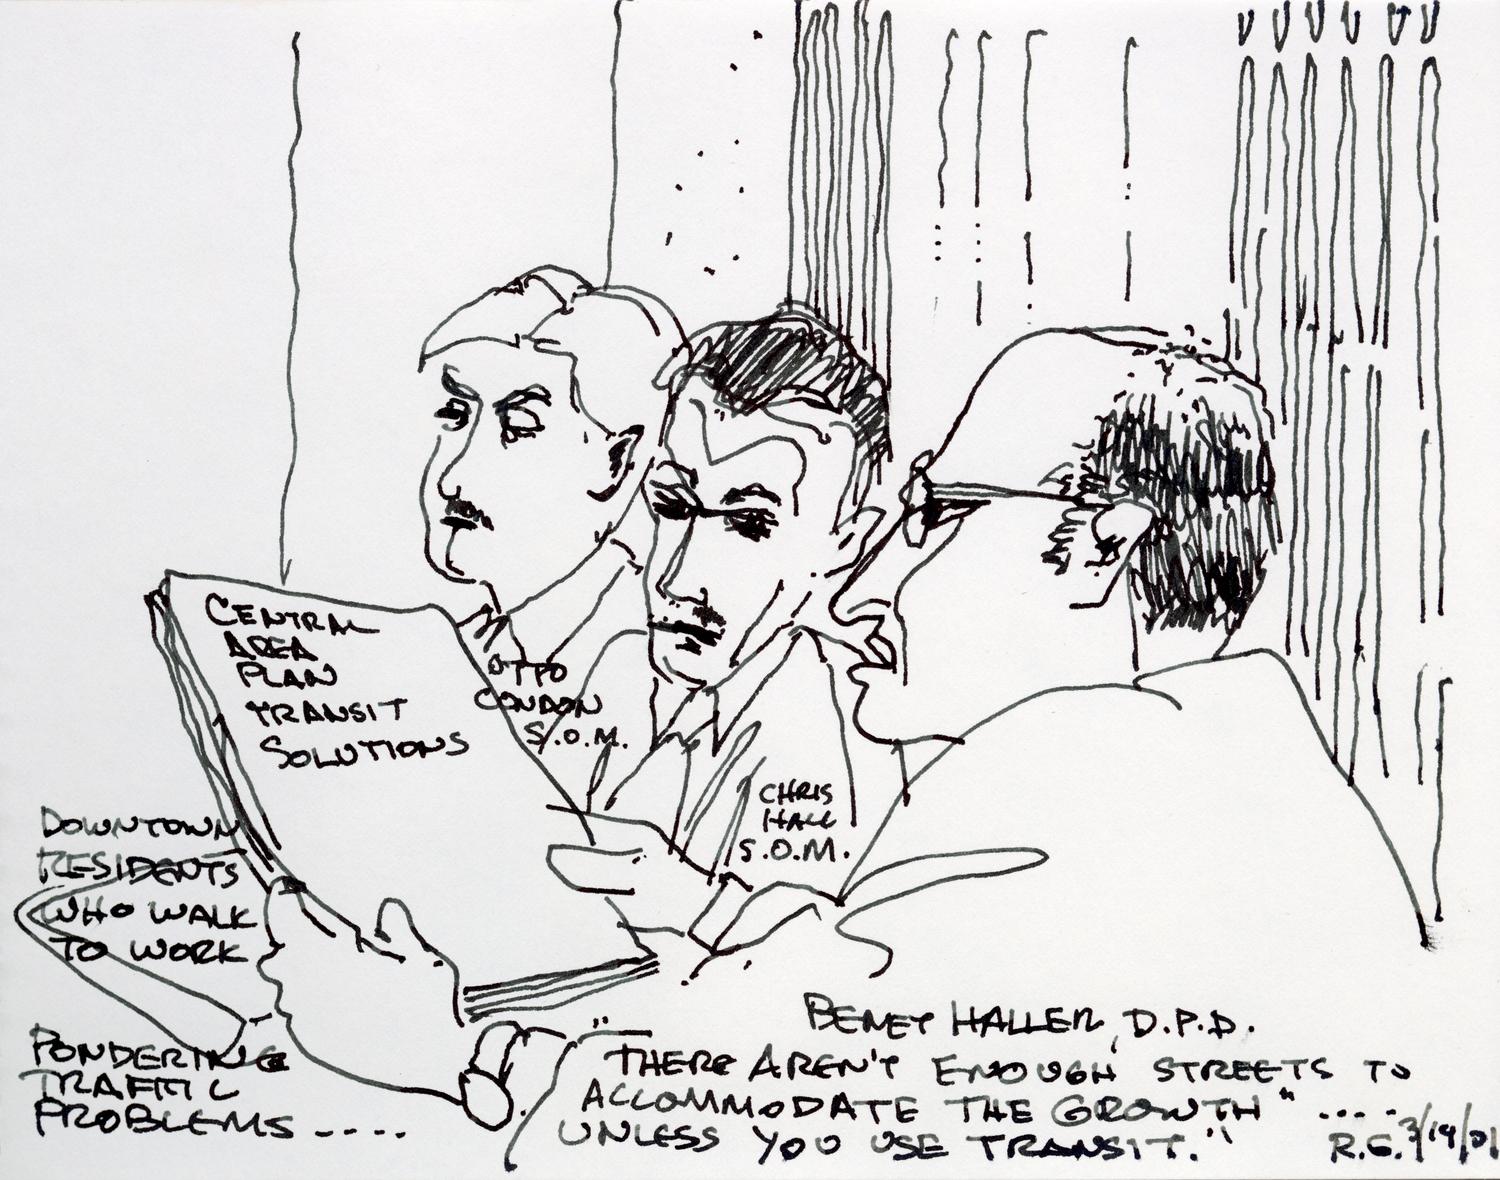 CENTRAL
AREA
PLAN
TRANSIT
SOLUTIONS
OTTO
CONDON
S.O.M.
CHRIS
HALL
S.O.M.
DOWNTOWN
RESIDENTS
WHO WALK
TO WORK
PONDERING
TRAFFIC
PROBLEMS ----
BENET HALLER, D.P.D.
"THERE AREN'T ENOUGH STREETS TO
ACCOMMODATE THE GROWTH" ....
UNLESS YOU USE TRANSIT."
R.E. 3/19/01